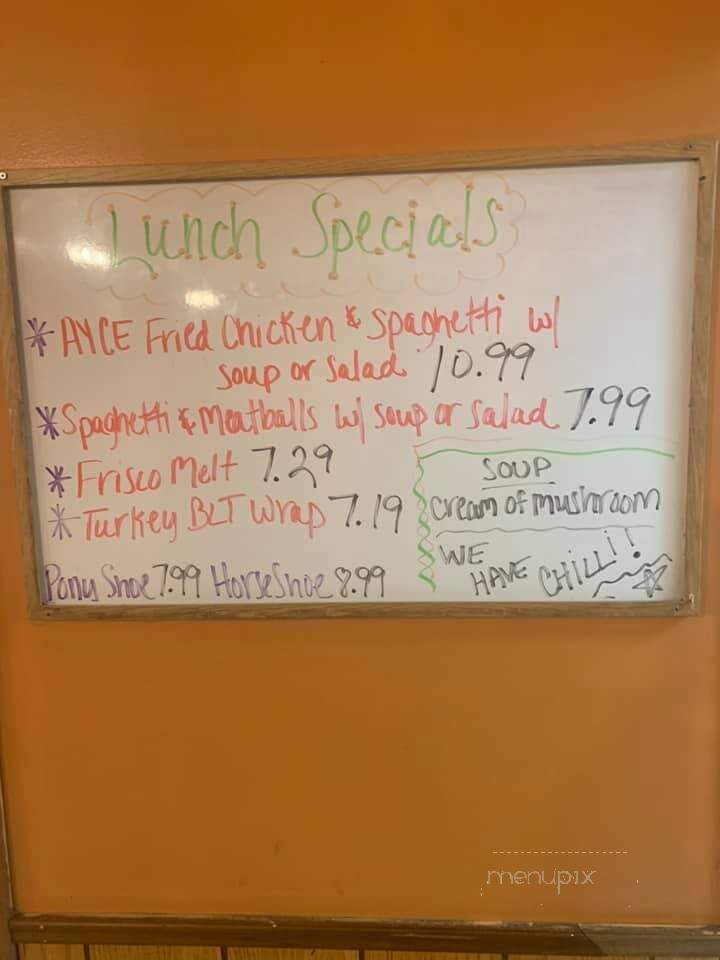 Lunch Specials
* AYCE Fried Chicken & Spaghetti w/
soup or salad 10.99
* Spaghetti & Meatballs w/ soup or salad 7.99
* Frisco Melt 7.29
* Turkey BLT Wrap 7.19
Pony Shoe 7.99 HorseShoe 8.99
SOUP
cream of mushroom
WE HAVE CHILLI!!
menupix